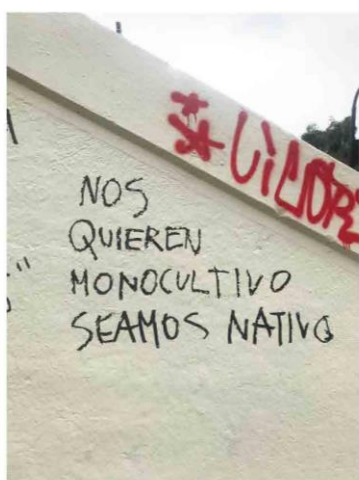 NOS
QUIEREN
MONOCULTIVO
SEAMOS NATIVO